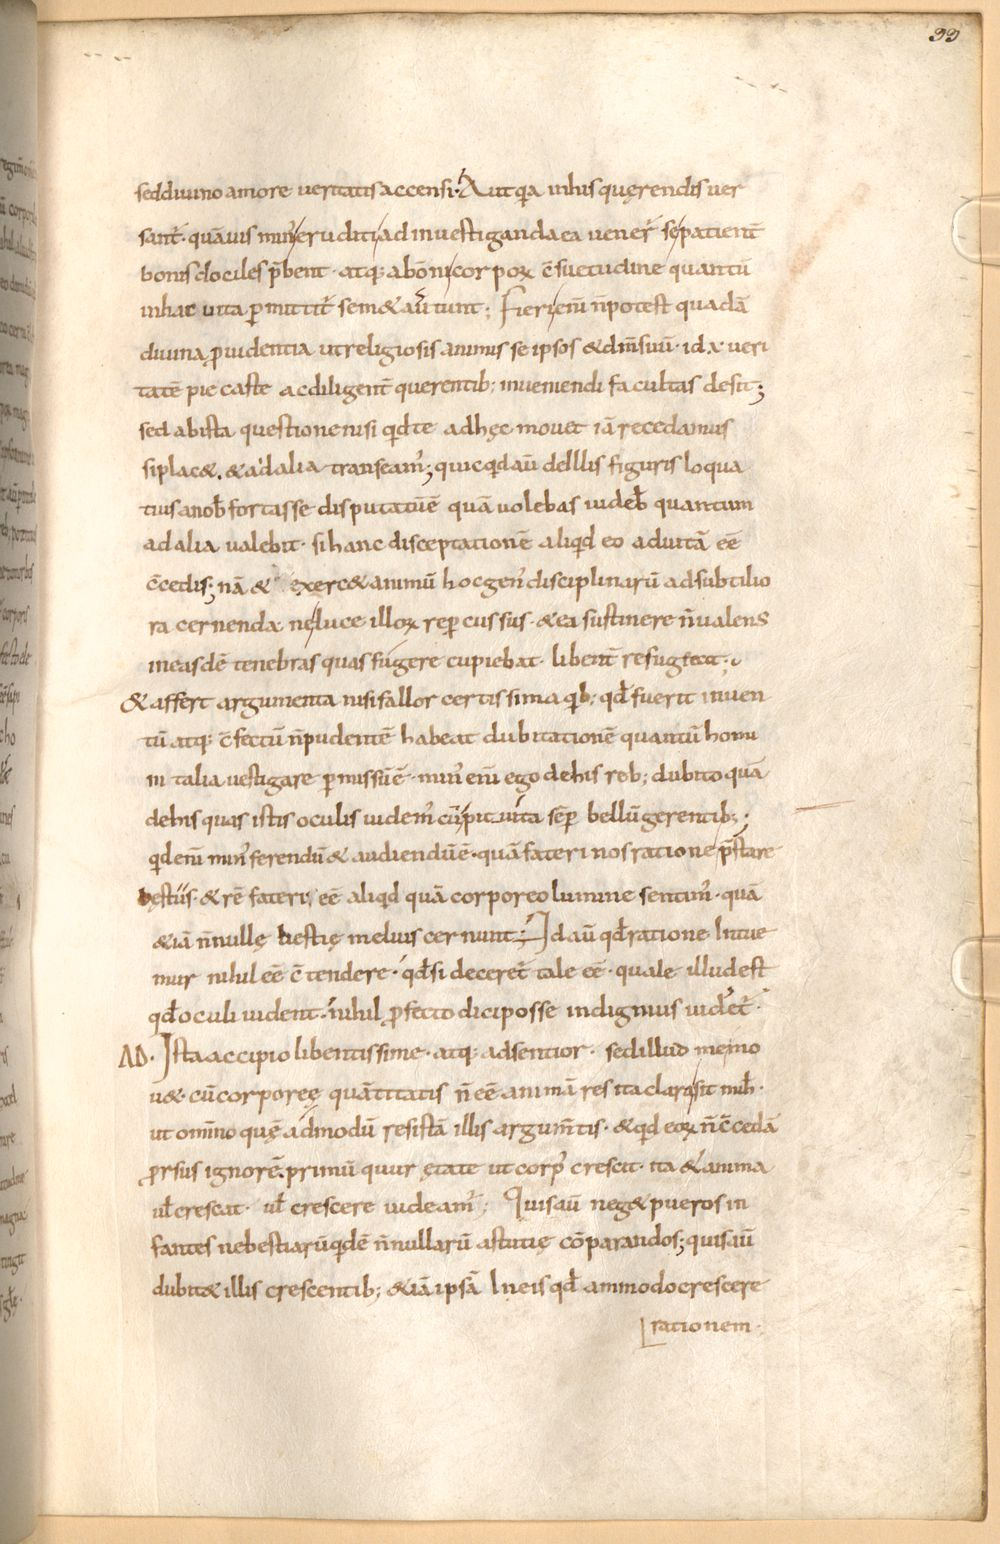 99
sed divino amore veritatis accensi· Aut q̄a inhis quęrendis ver
sant᷒· quāvis min᷒ eruditi ad investiganda ea vener̄ se patient̄
bonis dociles p̄bent· atq; ab om̄i corpoꝝ c̄suetudine quantū
inhac vita ꝑmittit᷒ semet aṽtunt; Fieri eni̅ n̄ potest quadā
divina ꝓvidentia ut religiosis animis se ipsos & dm̄ suū· id ÷ veri
tatē pie caste ac diligent̄ querentib; inveniendi facultas desit;
sed ab ista questione nisi qid te adhęc movet iā recedamus
si plac&, & ad alia transeam᷒; quicqid aū delllis figuris loqua
tius a nob̄ fortasse disputatū ē quā volebas videb̄ quantum
ad alia valebit· si hanc disceptationē aliqid eo adiutā eē
c̄cedis; nā & exerc& animū hoc gen᷒ disciplinarū ad subtilio
ra cernenda ne luce illoꝝ reꝑcussus· & ea sustinere n̄ valens
in easdē tenebras quas fugere cupiebat· libent̄ refugeat·
& affert argumenta nisi fallor certissima qib; qd̄ fuerit inven
tū atq; c̄fectū n̄pudentē habeat dubitationē quantū homi
ni talia vestigare ꝑmissū ē· min᷒ eni̅ ego de his reb; dubito quā
de his quas istis oculis videm᷒ cū pituita sēꝑ bellū gerentib;·
qid eni̅ min᷒ ferendū & audiendū ē· quā fateri nos ratione p̄stare
bęstiis· & rē fateri eē aliqid quā corporeo lumine sentim᷒· quā
& iā n̄nullę bestię melius cernunt; Id aū qd̄ ratione intue
mur nihil eē c̄tendere· qd̄ si deceret̄ tale eē· quale illud est
qd̄ oculi vident· nihil ꝓfecto dici posse indignius videt̄·
AD· Ista accipio libentissime· atq; adsentior· sed illud me mo
v&· cū corporeę quātitatis n̄ eē animā res ita clara sit mihi·
ut omīno quę admodū resistā illis argum̄tis· & qid eoꝝ n̄ c̄cedā
ꝓrsus ignorē· primū quur ętate ut corp᷒ crescit· ita & anima
vl̄ crescat· vl̄ crescere videam᷒; Quis aū neg& pueros in
fantes ne bestiarū qidē n̄nullarū astutię cōparandos; quis aū
dubit& illis crescentib; &iā ipsā In eis qd̄ ammodo crescere
rationem·